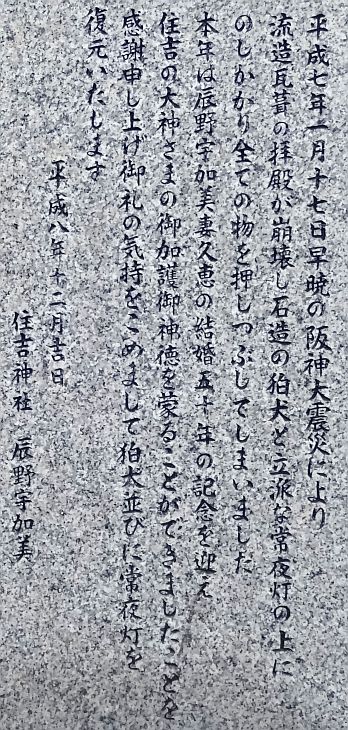 平成七年一月十七日早暁の阪神大震災により
流造瓦葺の拝殿が崩壊し石造の狛犬と立派な常夜灯の上に
のしかかり全ての物を押しつぶしてしまいました
本年は辰野宇加美妻久恵の結婚五十年の記念を迎え
住吉の大神さまの御加護御神徳を蒙ることができましたことを
感謝申し上げ御礼の気持をこめまして狛犬並びに常夜灯を
復元いたします
平成八年十二月吉日
住吉神社 辰野宇加美